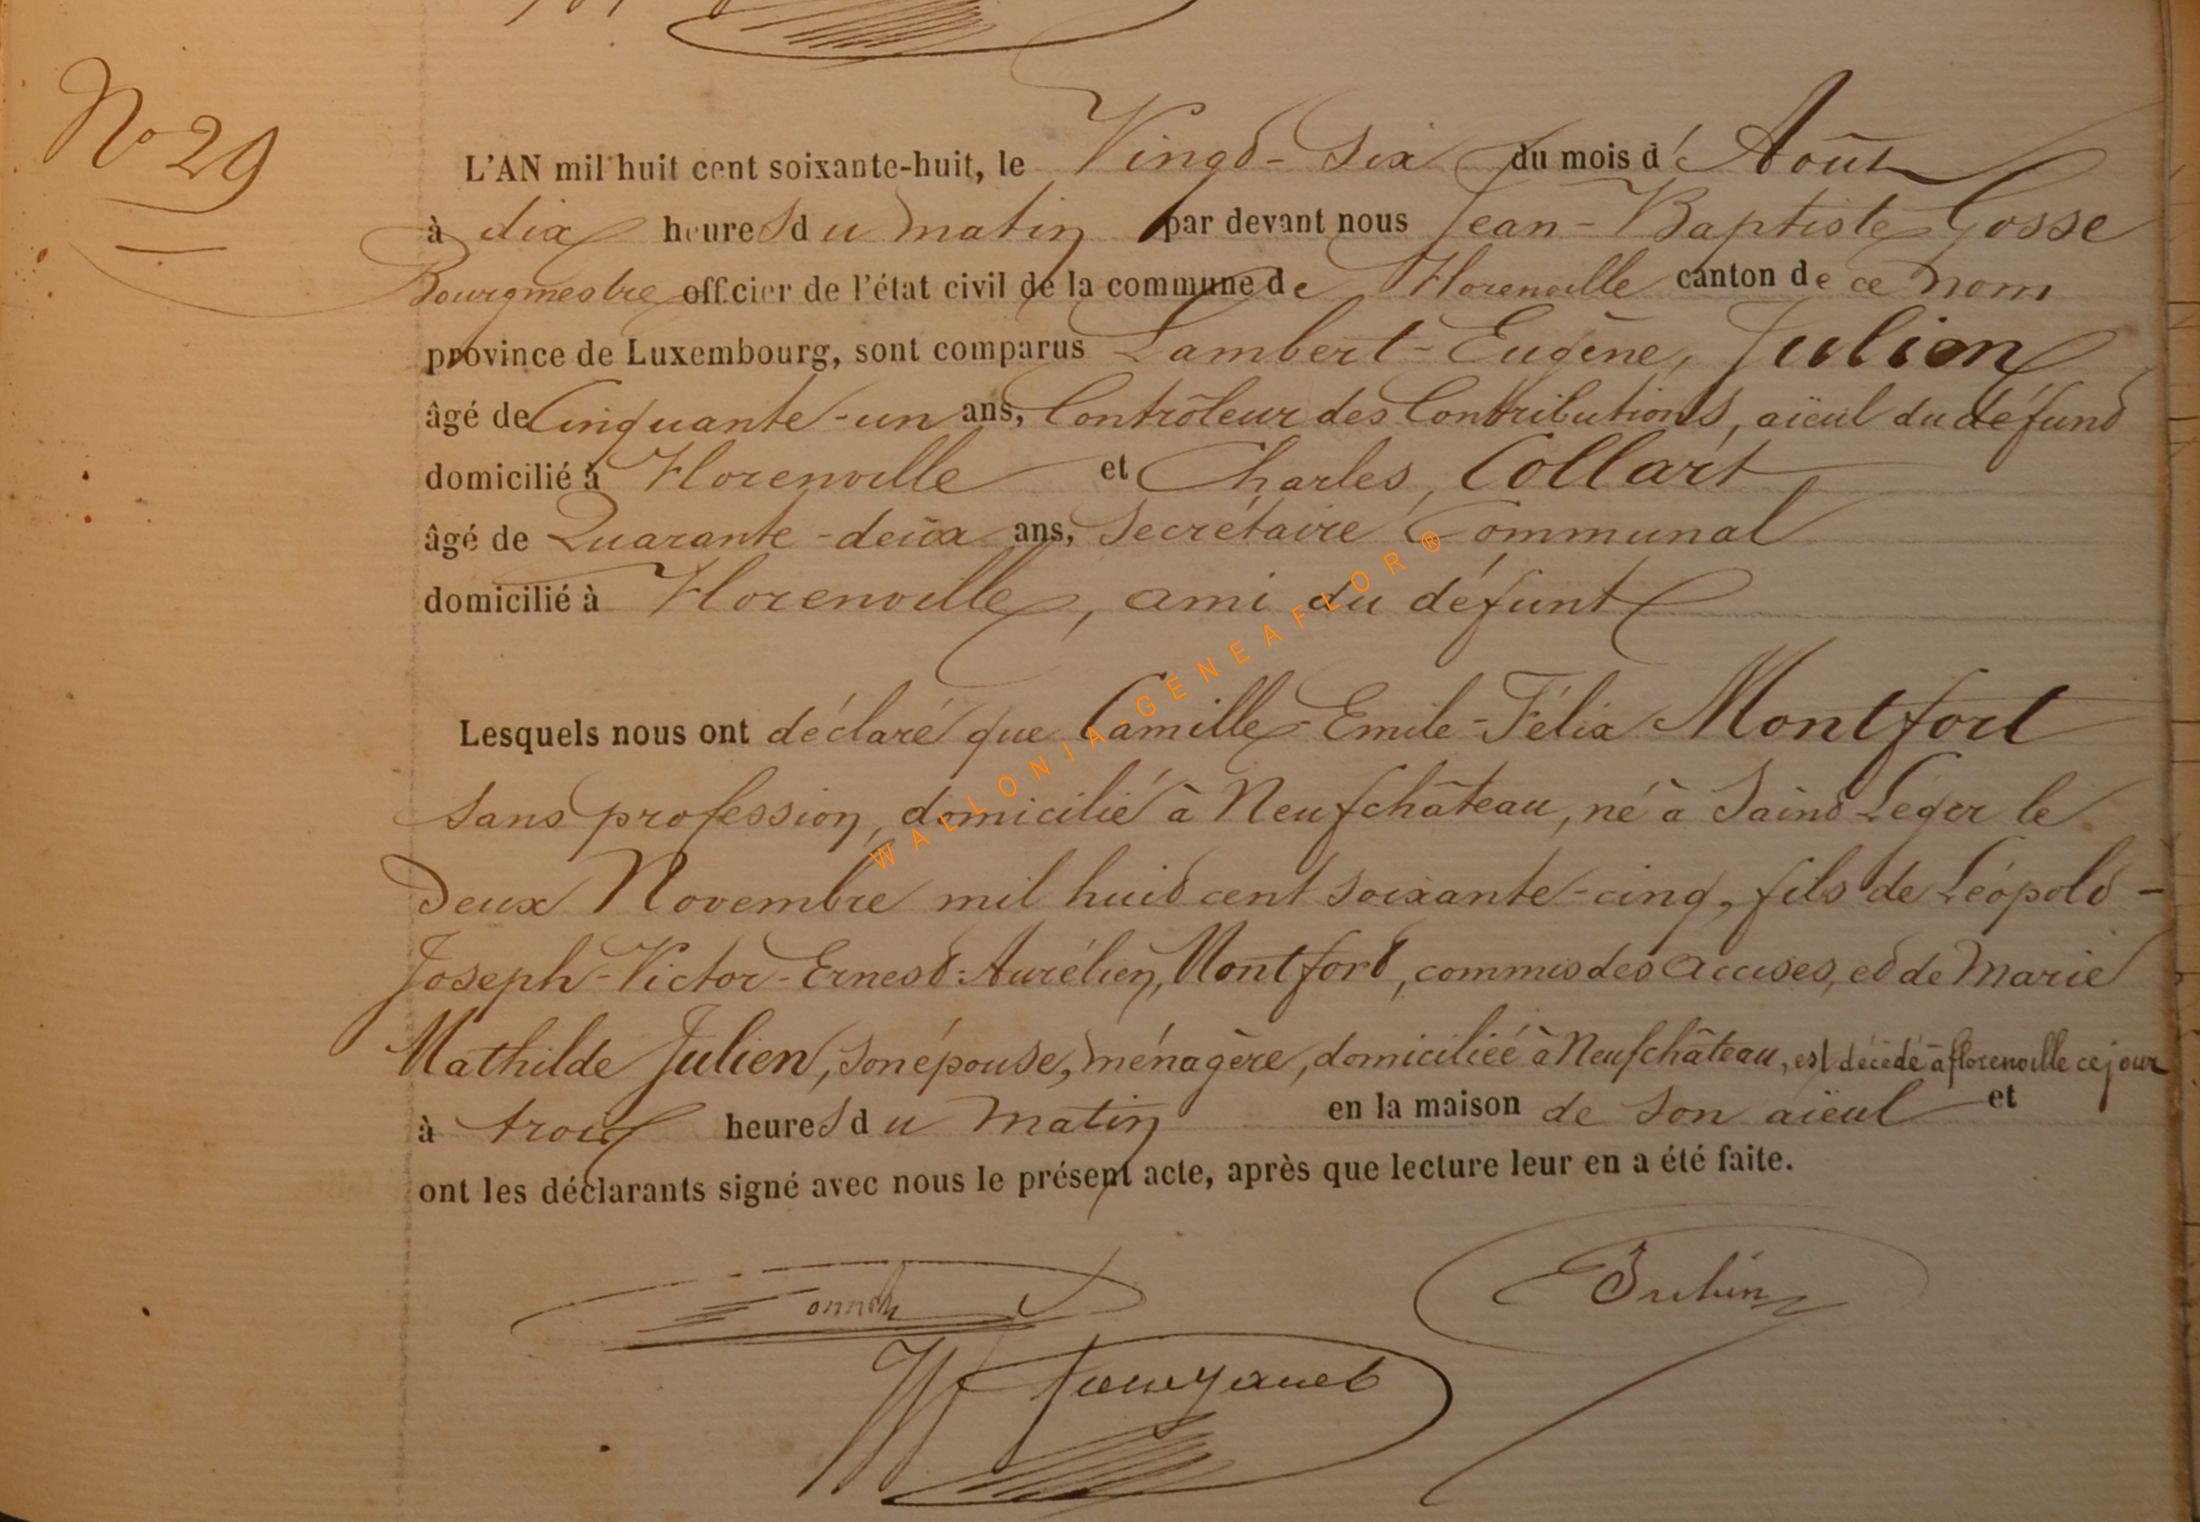 No 29
L'AN mil huit cent soixante-huit, le Vingt-Six du mois d'e Août
à dix heures du matin par devant nous Jean-Baptiste Gosse
Bourgmestre officier de l'état civil de la commune de Florenville canton de ce nom
province de Luxembourg, sont comparus Lambert-Eugène, Julien
âgé de Cinquante-un ans, Contrôleur des Contributions, aïeul du défunt
domicilié à Florenville et Charles, Collart
âgé de Quarante-deux ans, Secrétaire Communal
domicilié à Florenville, ami du défunt
Lesquels nous ont déclaré que Camille-Emile-Félix Montfort
sans profession, domicilié à Neufchâteau, né à Saint Léger le
Deux Novembre mil huit cent soixante-cinq, fils de Léopold-
Joseph-Victor-Ernest-Aurélien, Montfort, commis des accises, et de Marie
Mathilde Julien, son épouse, ménagère, domiciliée à Neufchâteau, est décédé à florenville ce jour
à trois heures du matin en la maison de son aïeul et
ont les déclarants signé avec nous le présent acte, après que lecture leur en a été faite.
E Julien
WALLONIA-GENEAFLOR®